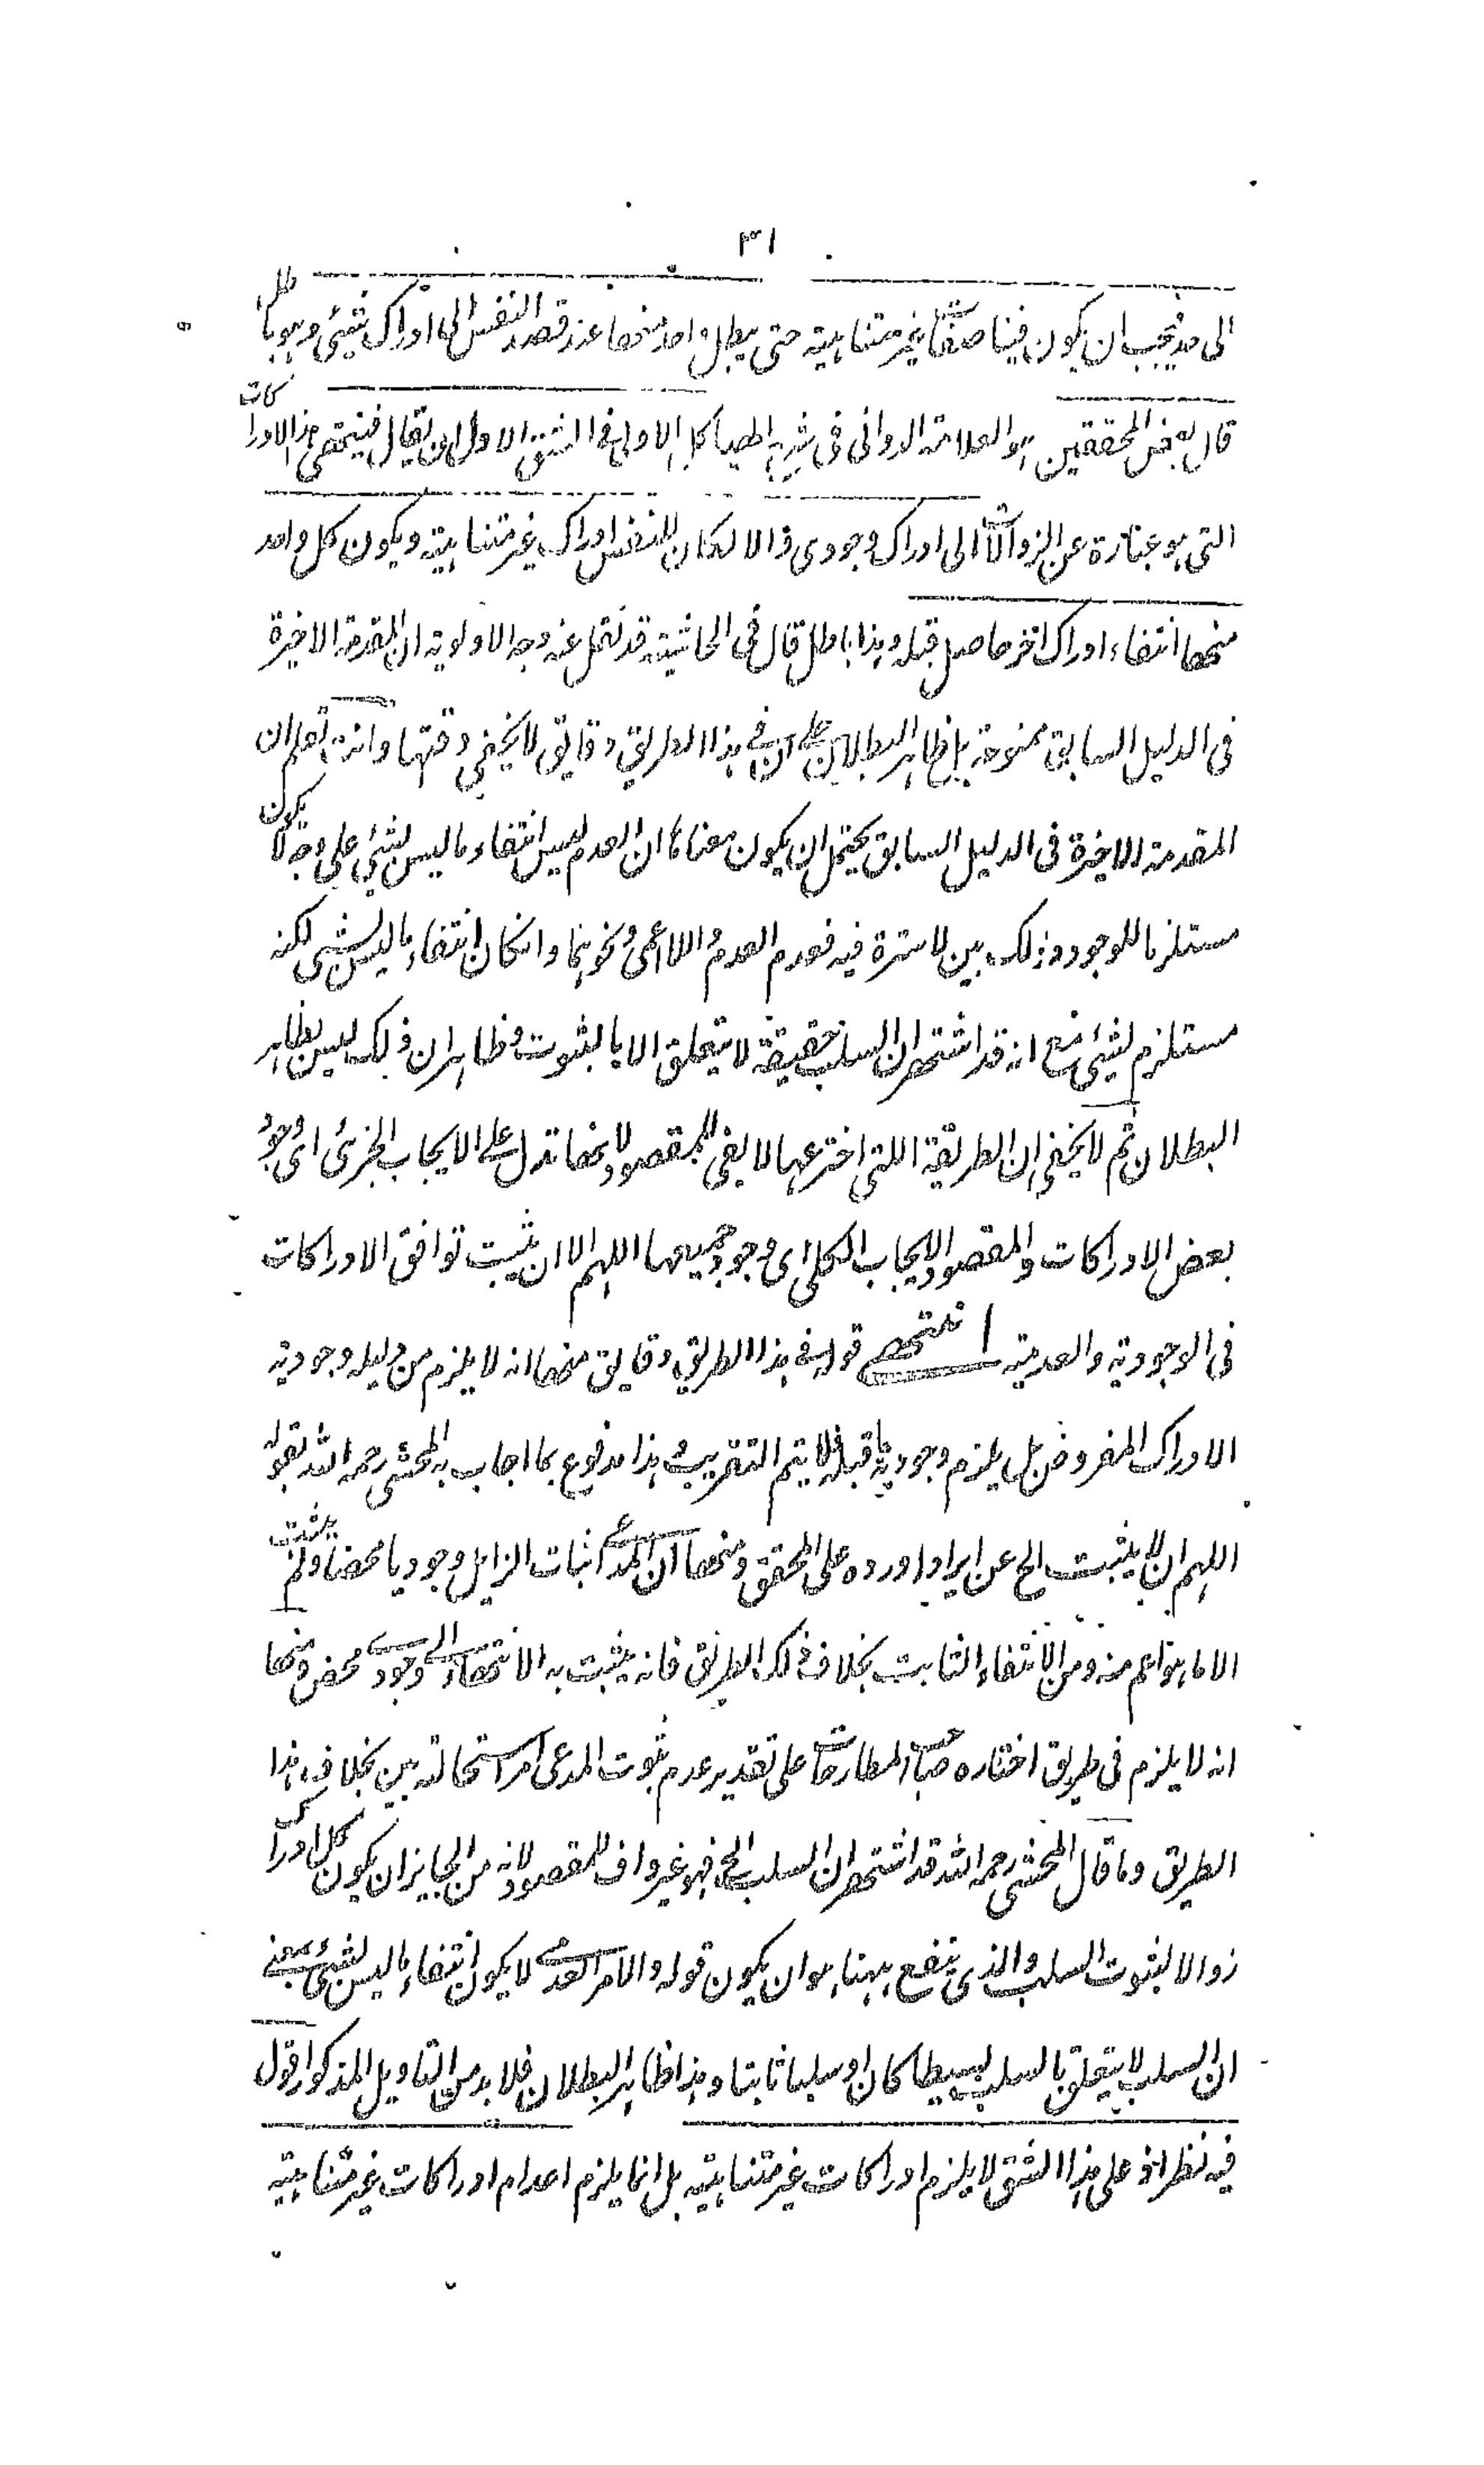 ٣١
الى حد فيجب ان يكون فينا صفات غير متناهية حتى يبطل واحد منها عند قصد النفس الى ادراك شيئ وهو باطل
قال بعض المحققين هو العلامة الدوانى فى شرح الهياكل الاولى فى الشق الاول ان يقال فينتهى هذا الادراكات
التى هو عبارة عن الزوالات الى ادراك وجودى والا لكان للنفس ادراك غير متناهية ويكون كل واحد
منها انتفاء ادراك اخر حاصل قبله وهذا باطل قال فى الحاشية قد نقل عنه وجه الاولوية ان المقدمة الاخيرة
فى الدليل السابق ممنوعة بل ظاهر البطلان على ان فى هذا الطريق دقايق لا يخفى دقتها وانت تعلم ان
المقدمة الاخيرة فى الدليل السابق يحتمل ان يكون معناها ان العدم ليس انتفاء ما ليس لشيئ على وجه لا يكون
مستلزما للوجود وذلك بين لا سترة فيه فعدم العدم واللااعمى ونحوهما وانكان انتفاء ما ليس لشيئ لكنه
مستلزم لشيئ مع انه قد اشتهر ان السلب حقيقة لا يتعلق الا بالثبوت وظاهر ان ذلك ليس بظاهر
البطلان ثم لا يخفى ان الطريقة اللتى اخترعها لا يفى للمقصود لانها تدل على الايجاب الجزئى اى وجود
بعض الادراكات والمقصود الايجاب الكلى اى وجود جميعها اللهم الا ان يثبت توافق الادراكات
فى الوجودية والعدمية انتهى قوله فى هذا الطريق دقايق منها انه لا يلزم من دليله وجودية
الادراك المفروض بل يلزم وجودية ما قبله فلا يتم التقريب وهذا مدفوع بما اجاب به المحشى رحمه الله بقوله
اللهم ان لا يثبت الخ عن ايراد اورده على المحقق ومنها ان المدعى اثبات الزايل وجوديا محضا ولم يثبت
الا ما هو اعم منه ومن الانتفاء الثابت بخلاف ذلك الطريق فانه يثبت به الانتهاء الى وجودى محض ومنها
انه لا يلزم فى طريق اختاره صاحب المطارحات على تقدير عدم ثبوت المدعى امر استحالته بين بخلاف هذا
الطريق وما قال المحشى رحمه الله قد اشتهر ان السلب الخ فهو غير واف للمقصود لانه من الجايز ان يكون كل ادراك
زوالا لثبوت السلب والذى ينفع ههنا هو ان يكون قوله والامر العدمى لا يكون انتفاء ما ليس لشيئ بمعنى
ان السلب لا يتعلق بالسلب بسيطا كان او سلبا ثابتا وهذا ظاهر البطلان فلا بد من التاويل المذكور اقول
فيه نظر اذ على هذا الشق لا يلزم ادراكات غير متناهية بل انما يلزم اعدام ادراكات غير متناهية